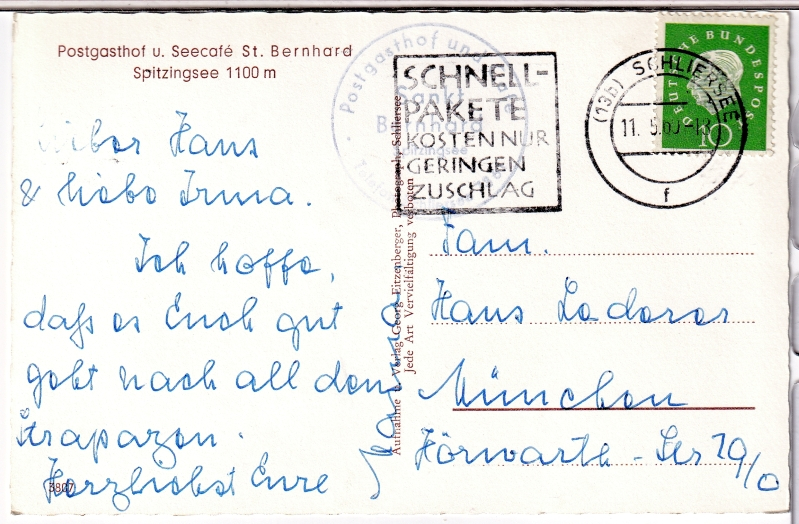 Postgasthof u. Seecafé St. Bernhard
Spitzingsee 1100 m
Postgasthof und
Sankt
Bernhard
Spitzingsee
SCHNELL-
PAKETE
KOSTEN NUR
GERINGEN
ZUSCHLAG
(13b) SCHLIERSEE
11. 5.60-18
f
DEUTSCHE BUNDESPOST
10
Lieber Hans
& liebe Irma.
Ich hoffe,
daß es Euch gut
geht nach all den
Strapazen.
Herzlichst Eure
3807
Aufnahme u. Verlag Georg Eitzenberger, Photograph, Schliersee
Jede Art Vervielfältigung verboten
Fam.
Hans Laderer
München
Hörwarth-Str 29/0